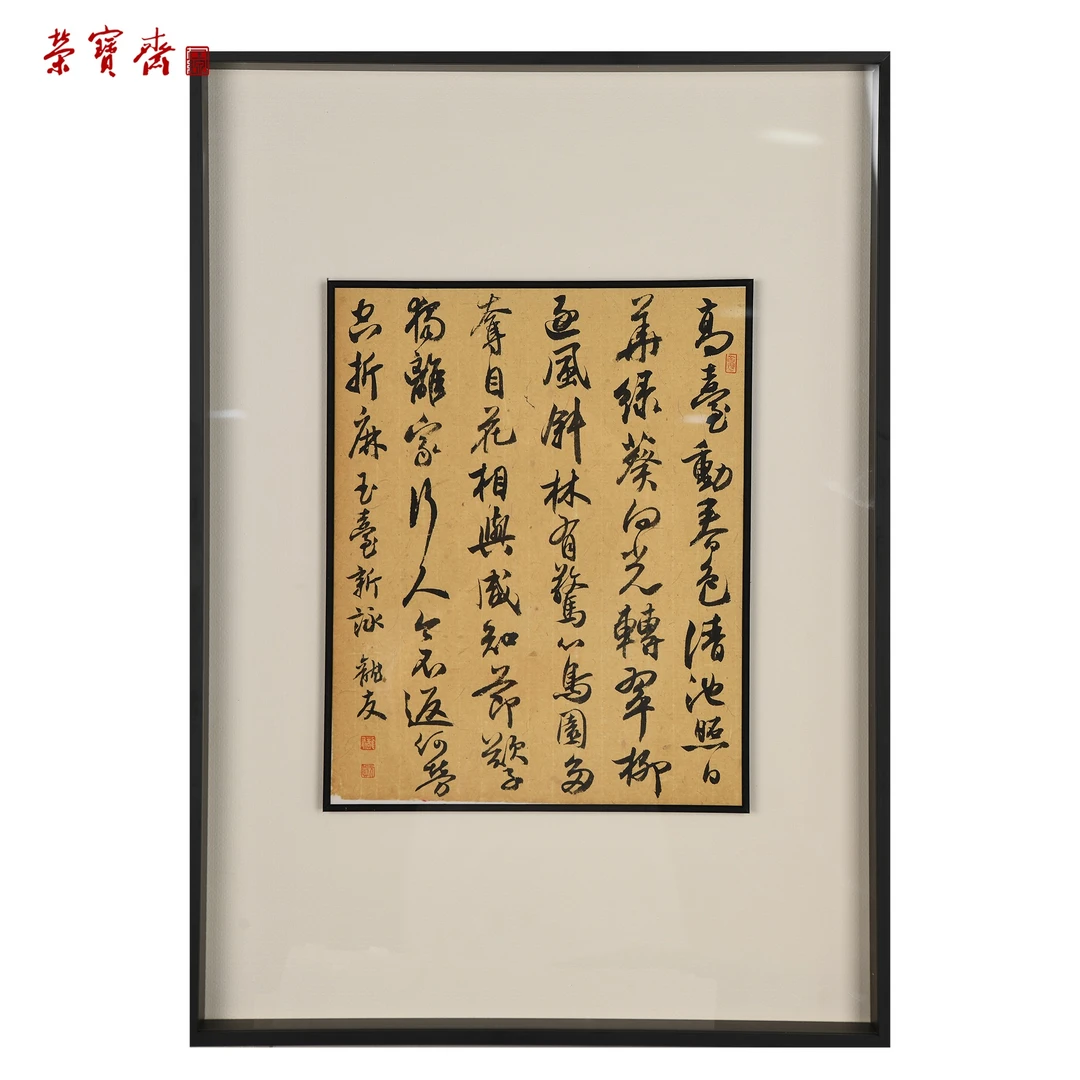 榮寶齋
高臺動春色清池照日
華綠葵向光轉翠柳
逐風斜林有驚心鳥園多
奪目花相與咸知節歎子
獨離家行人今不返何勞
空折麻玉臺新詠 龍友